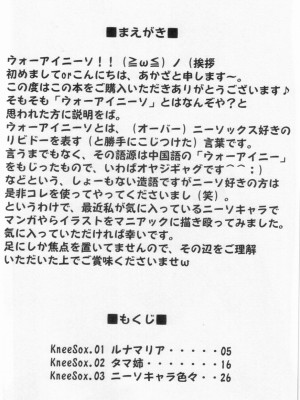 ■まえがき■
ウォーアイニーソ！！(≧ω≦)ノ(挨拶
初めましてorこんにちは、あかざと申します～。
この度はこの本をご購入いただきありがとうございます♪
そもそも「ウォーアイニーソ」とはなんぞや？と
思われた方に説明をば。
ウォーアイニーソとは、（オーバー）ニーソックス好きの
リビドーを表す（と勝手にこじつけた）言葉です。
言うまでもなく、その語源は中国語の「ウォーアイニー」
をもじったもので、いわばオヤジギャグです(⌒⌒;)
などという、しょーもない造語ですがニーソ好きの方は
是非コレを使ってやってくださいまし（笑）。
というわけで、最近私が気に入っているニーソキャラで
マンガやらイラストをマニアックに描き殴ってみました。
気に入っていただければ幸いです。
足にしか焦点を置いてませんので、その辺をご理解
いただいた上でご賞味くださいませω
■もくじ■
KneeSox.01 ルナマリア・・・・・05
KneeSox.02 タマ姉・・・・・・・16
KneeSox.03 ニーソキャラ色々・・26